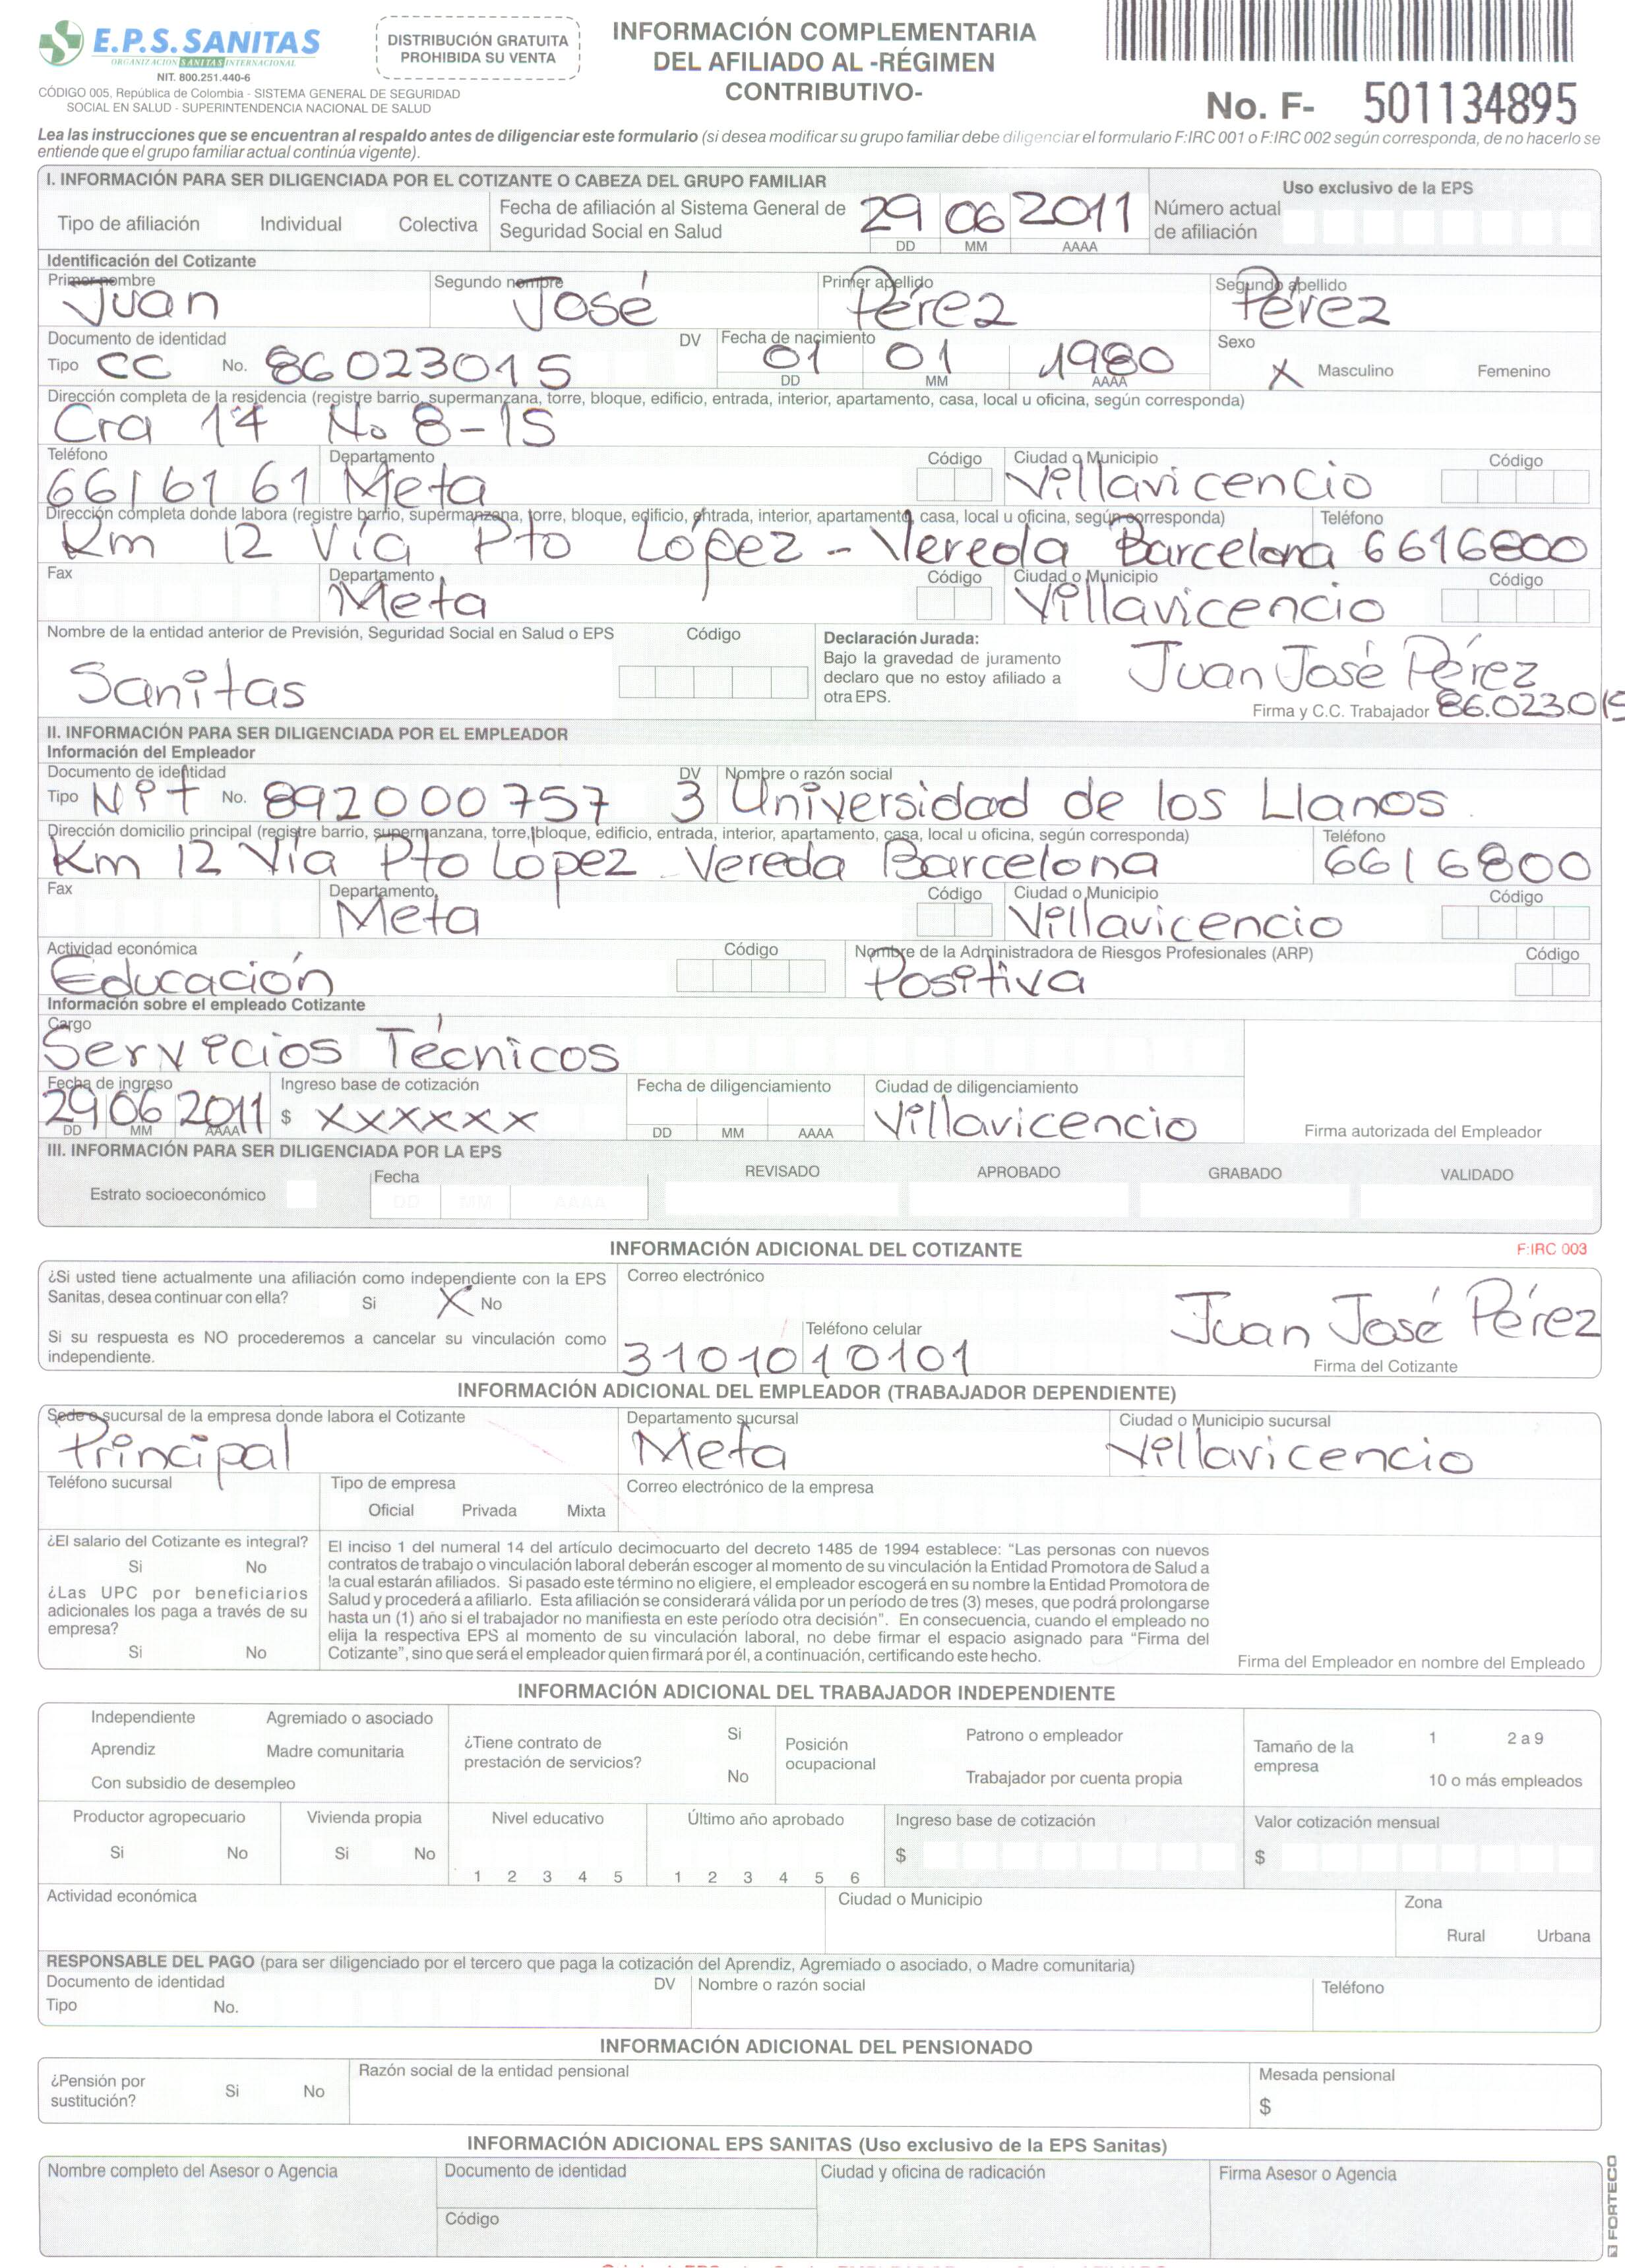 E.P.S. SANITAS
ORGANIZACIÓN SANITAS INTERNACIONAL
NIT. 800.251.440-6
CÓDIGO 005, República de Colombia - SISTEMA GENERAL DE SEGURIDAD
SOCIAL EN SALUD - SUPERINTENDENCIA NACIONAL DE SALUD
DISTRIBUCIÓN GRATUITA
PROHIBIDA SU VENTA
INFORMACIÓN COMPLEMENTARIA
DEL AFILIADO AL -RÉGIMEN
CONTRIBUTIVO-
No. F- 501134895
Lea las instrucciones que se encuentran al respaldo antes de diligenciar este formulario (si desea modificar su grupo familiar debe diligenciar el formulario F:IRC 001 o F:IRC 002 según corresponda, de no hacerlo se
entiende que el grupo familiar actual continúa vigente).
I. INFORMACIÓN PARA SER DILIGENCIADA POR EL COTIZANTE O CABEZA DEL GRUPO FAMILIAR
Uso exclusivo de la EPS
Tipo de afiliación Individual Colectiva
Fecha de afiliación al Sistema General de
Seguridad Social en Salud
29 06 2011
DD MM AAAA
Número actual
de afiliación
Identificación del Cotizante
Primer nombre Segundo nombre Primer apellido Segundo apellido
Juan José Pérez Pérez
Documento de identidad DV Fecha de nacimiento Sexo
Tipo CC No. 86023015 01 01 1980 X Masculino Femenino
DD MM AAAA
Dirección completa de la residencia (registre barrio, supermanzana, torre, bloque, edificio, entrada, interior, apartamento, casa, local u oficina, según corresponda)
Cra 14 No 8-15
Teléfono Departamento Código Ciudad o Municipio Código
6616161 Meta Villavicencio
Dirección completa donde labora (registre barrio, supermanzana, torre, bloque, edificio, entrada, interior, apartamento, casa, local u oficina, según corresponda) Teléfono
Km 12 Vía Pto López - Vereda Barcelona 6616800
Fax Departamento Código Ciudad o Municipio Código
Meta Villavicencio
Nombre de la entidad anterior de Previsión, Seguridad Social en Salud o EPS Código
Sanitas
Declaración Jurada:
Bajo la gravedad de juramento
declaro que no estoy afiliado a
otra EPS.
Juan José Pérez
Firma y C.C. Trabajador 86.023.015
II. INFORMACIÓN PARA SER DILIGENCIADA POR EL EMPLEADOR
Información del Empleador
Documento de identidad DV Nombre o razón social
Tipo Nit No. 892000757 3 Universidad de los Llanos
Dirección domicilio principal (registre barrio, supermanzana, torre, bloque, edificio, entrada, interior, apartamento, casa, local u oficina, según corresponda) Teléfono
Km 12 Vía Pto López Vereda Barcelona 6616800
Fax Departamento Código Ciudad o Municipio Código
Meta Villavicencio
Actividad económica Código Nombre de la Administradora de Riesgos Profesionales (ARP) Código
Educación Positiva
Información sobre el empleado Cotizante
Cargo
Servicios Técnicos
Fecha de ingreso Ingreso base de cotización Fecha de diligenciamiento Ciudad de diligenciamiento
29 06 2011 $ xxxxxx Villavicencio
DD MM AAAA DD MM AAAA Firma autorizada del Empleador
III. INFORMACIÓN PARA SER DILIGENCIADA POR LA EPS
Estrato socioeconómico Fecha REVISADO APROBADO GRABADO VALIDADO
DD MM AAAA
INFORMACIÓN ADICIONAL DEL COTIZANTE
F:IRC 003
¿Si usted tiene actualmente una afiliación como independiente con la EPS
Sanitas, desea continuar con ella? Si X No
Si su respuesta es NO procederemos a cancelar su vinculación como
independiente.
Correo electrónico
Teléfono celular
3101010101
Juan José Pérez
Firma del Cotizante
INFORMACIÓN ADICIONAL DEL EMPLEADOR (TRABAJADOR DEPENDIENTE)
Sede o sucursal de la empresa donde labora el Cotizante Departamento sucursal Ciudad o Municipio sucursal
Principal Meta Villavicencio
Teléfono sucursal Tipo de empresa Correo electrónico de la empresa
Oficial Privada Mixta
¿El salario del Cotizante es integral?
Si No
¿Las UPC por beneficiarios
adicionales los paga a través de su
empresa?
Si No
El inciso 1 del numeral 14 del artículo decimocuarto del decreto 1485 de 1994 establece: “Las personas con nuevos
contratos de trabajo o vinculación laboral deberán escoger al momento de su vinculación la Entidad Promotora de Salud a
la cual estarán afiliados. Si pasado este término no eligiere, el empleador escogerá en su nombre la Entidad Promotora de
Salud y procederá a afiliarlo. Esta afiliación se considerará válida por un período de tres (3) meses, que podrá prolongarse
hasta un (1) año si el trabajador no manifiesta en este período otra decisión”. En consecuencia, cuando el empleado no
elija la respectiva EPS al momento de su vinculación laboral, no debe firmar el espacio asignado para “Firma del
Cotizante”, sino que será el empleador quien firmará por él, a continuación, certificando este hecho.
Firma del Empleador en nombre del Empleado
INFORMACIÓN ADICIONAL DEL TRABAJADOR INDEPENDIENTE
Independiente Agremiado o asociado
Aprendiz Madre comunitaria
Con subsidio de desempleo
¿Tiene contrato de
prestación de servicios?
Si
No
Posición
ocupacional
Patrono o empleador
Trabajador por cuenta propia
Tamaño de la
empresa
1 2 a 9
10 o más empleados
Productor agropecuario Vivienda propia Nivel educativo Último año aprobado Ingreso base de cotización Valor cotización mensual
Si No Si No 1 2 3 4 5 1 2 3 4 5 6 $ $
Actividad económica Ciudad o Municipio Zona
Rural Urbana
RESPONSABLE DEL PAGO (para ser diligenciado por el tercero que paga la cotización del Aprendiz, Agremiado o asociado, o Madre comunitaria)
Documento de identidad DV Nombre o razón social Teléfono
Tipo No.
INFORMACIÓN ADICIONAL DEL PENSIONADO
¿Pensión por
sustitución?
Si No
Razón social de la entidad pensional
Mesada pensional
$
INFORMACIÓN ADICIONAL EPS SANITAS (Uso exclusivo de la EPS Sanitas)
Nombre completo del Asesor o Agencia Documento de identidad Ciudad y oficina de radicación Firma Asesor o Agencia
Código
FORTECO